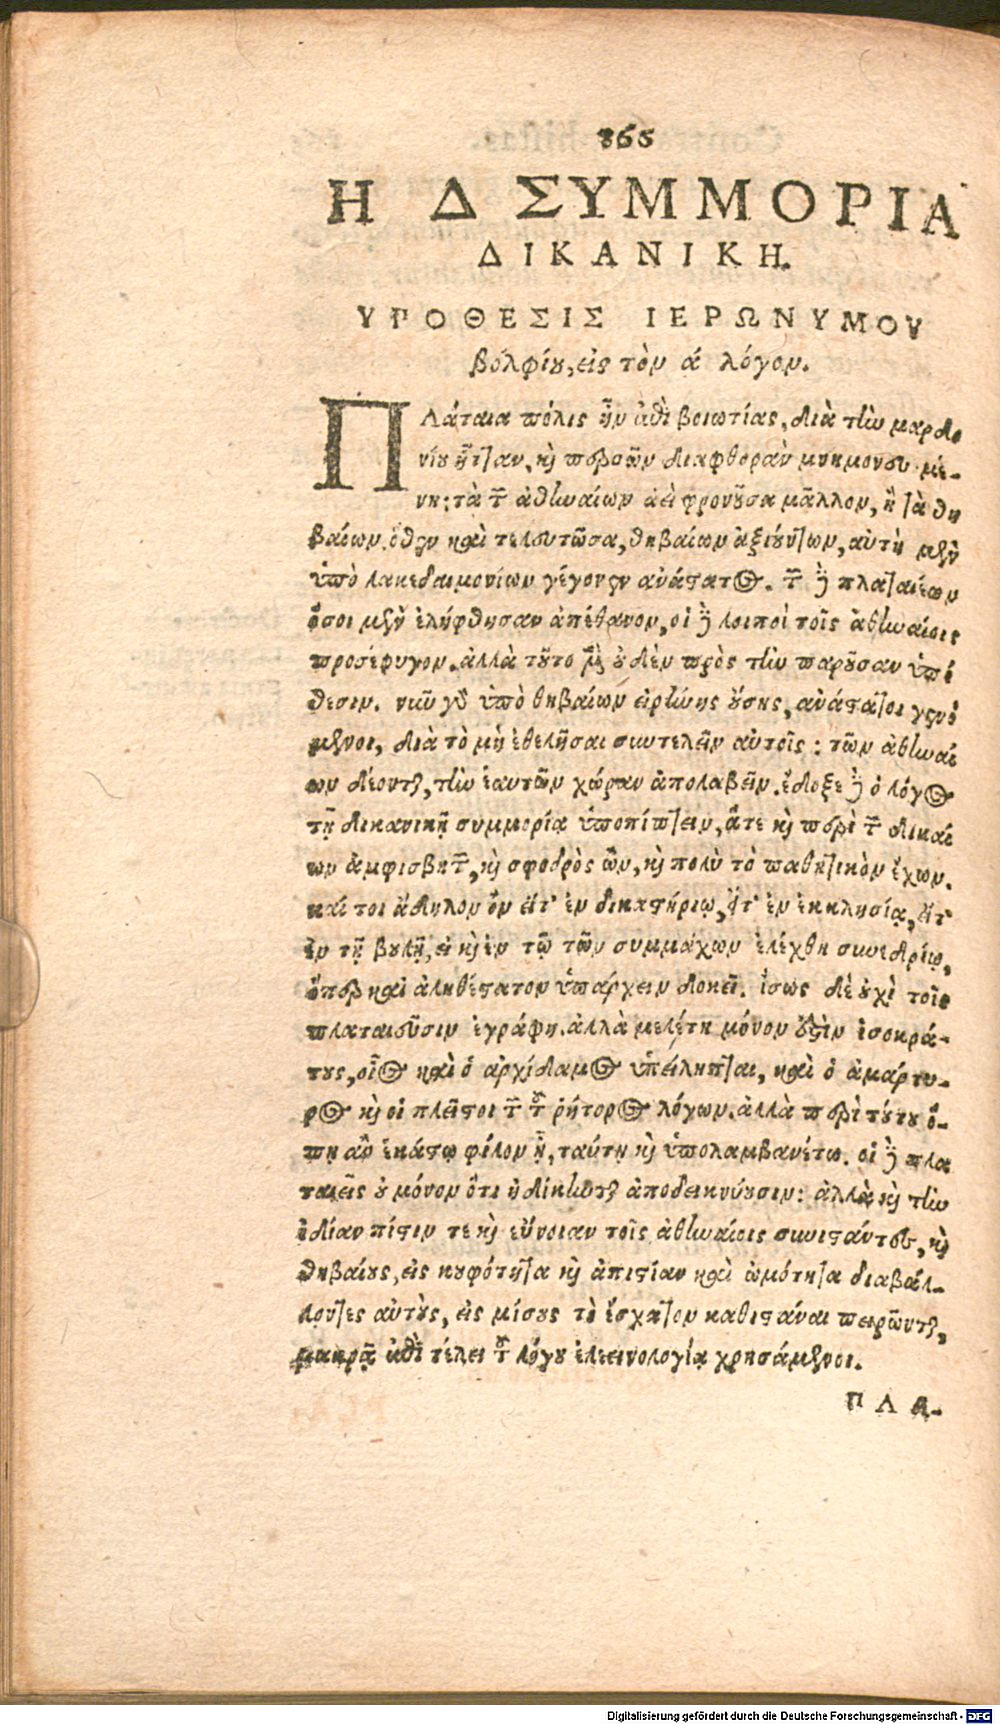 866
Η Δ ΣΥΜΜΟΡΙΑ
ΔΙΚΑΝΙΚΗ.
ΥΠΟΘΕΣΙΣ ΙΕΡΩΝΥΜΟΥ
βολφίου, εἰς τὸν ά λόγον.
ΠΛάταια πόλις ἦν ἐπὶ βοιωτίας, διὰ τὴν μαρδο
νίου ἧτταν, καὶ περσῶν διαφθορὰν μνημονευομέ-
νη: τὰ τῶν ἀθηναίων ἀεὶ φρονοῦσα μᾶλλον, ἢ τὰ θη
βαίων. ὅθεν καὶ τελευτῶσα, θηβαίων ἀξιούντων, αὐτὴ μὲν
ὑπὸ λακεδαιμονίων γέγονεν ἀνάστατος. τῶν δὲ πλαταιέων
ὅσοι μὲν ἐλήφθησαν ἀπέθανον, οἱ δὲ λοιποὶ τοῖς ἀθηναίοις
προσέφυγον. ἀλλὰ τοῦτο μὲν οὐδὲν πρὸς τὴν παροῦσαν ὑπό
θεσιν. νῦν γὰρ ὑπὸ θηβαίων εἰρήνης οὔσης, ἀνάστατοι γενό
μενοι, διὰ τὸ μὴ ἐθελῆσαι συντελεῖν αὐτοῖς: τῶν ἀθηναί
ων δέονται, τὴν ἑαυτῶν χώραν ἀπολαβεῖν. ἔδοξε δὲ ὁ λόγος
τῇ δικανικῇ συμμορίᾳ ὑποπίπτειν, ἅτε καὶ περὶ τῶν δικαί
ων ἀμφισβητῶν, καὶ σφοδρὸς ὢν, καὶ πολὺ τὸ παθητικὸν ἔχων.
καί τοι ἄδηλον ὂν εἴτ' ἐν δικαστηρίῳ, εἴτ' ἐν ἐκκλησίᾳ, εἴτ'
ἐν τῇ βουλῇ, εἰ καὶ ἐν τῷ τῶν συμμάχων ἐλέχθη συνεδρίῳ,
ὅπερ καὶ ἀληθέστατον ὑπάρχειν δοκεῖ. ἴσως δὲ οὐχὶ τοῖς
πλαταιεῦσιν ἐγράφη. ἀλλὰ μελέτη μόνον ἐστὶν ἰσοκρά-
τους, οἷος καὶ ὁ ἀρχίδαμος ὑπείληπται, καὶ ὁ ἀμάρτυ-
ρος καὶ οἱ πλεῖστοι τῶν τοῦ ῥήτορος λόγων. ἀλλὰ περὶ τούτου ὅ-
πῃ ἂν ἑκάστῳ φίλον ᾖ, ταύτῃ καὶ ὑπολαμβανέτω. οἱ δὲ πλα
ταιεῖς οὐ μόνον ὅτι ἠδίκηνται ἀποδεικνύουσιν: ἀλλὰ καὶ τὴν
ἰδίαν πίστιν τε καὶ εὔνοιαν τοῖς ἀθηναίοις συνιστάντες, καὶ
θηβαίους, εἰς κουφότητα καὶ ἀπιστίαν καὶ ὠμότητα διαβάλ-
λοντες αὐτοὺς, εἰς μίσους τὸ ἔσχατον καθιστάναι πειρῶνται,
μακρᾷ ἐπὶ τέλει τοῦ λόγου ἐλεεινολογίᾳ χρησάμενοι.
ΠΛΑ-
Digitalisierung gefördert durch die Deutsche Forschungsgemeinschaft - DFG